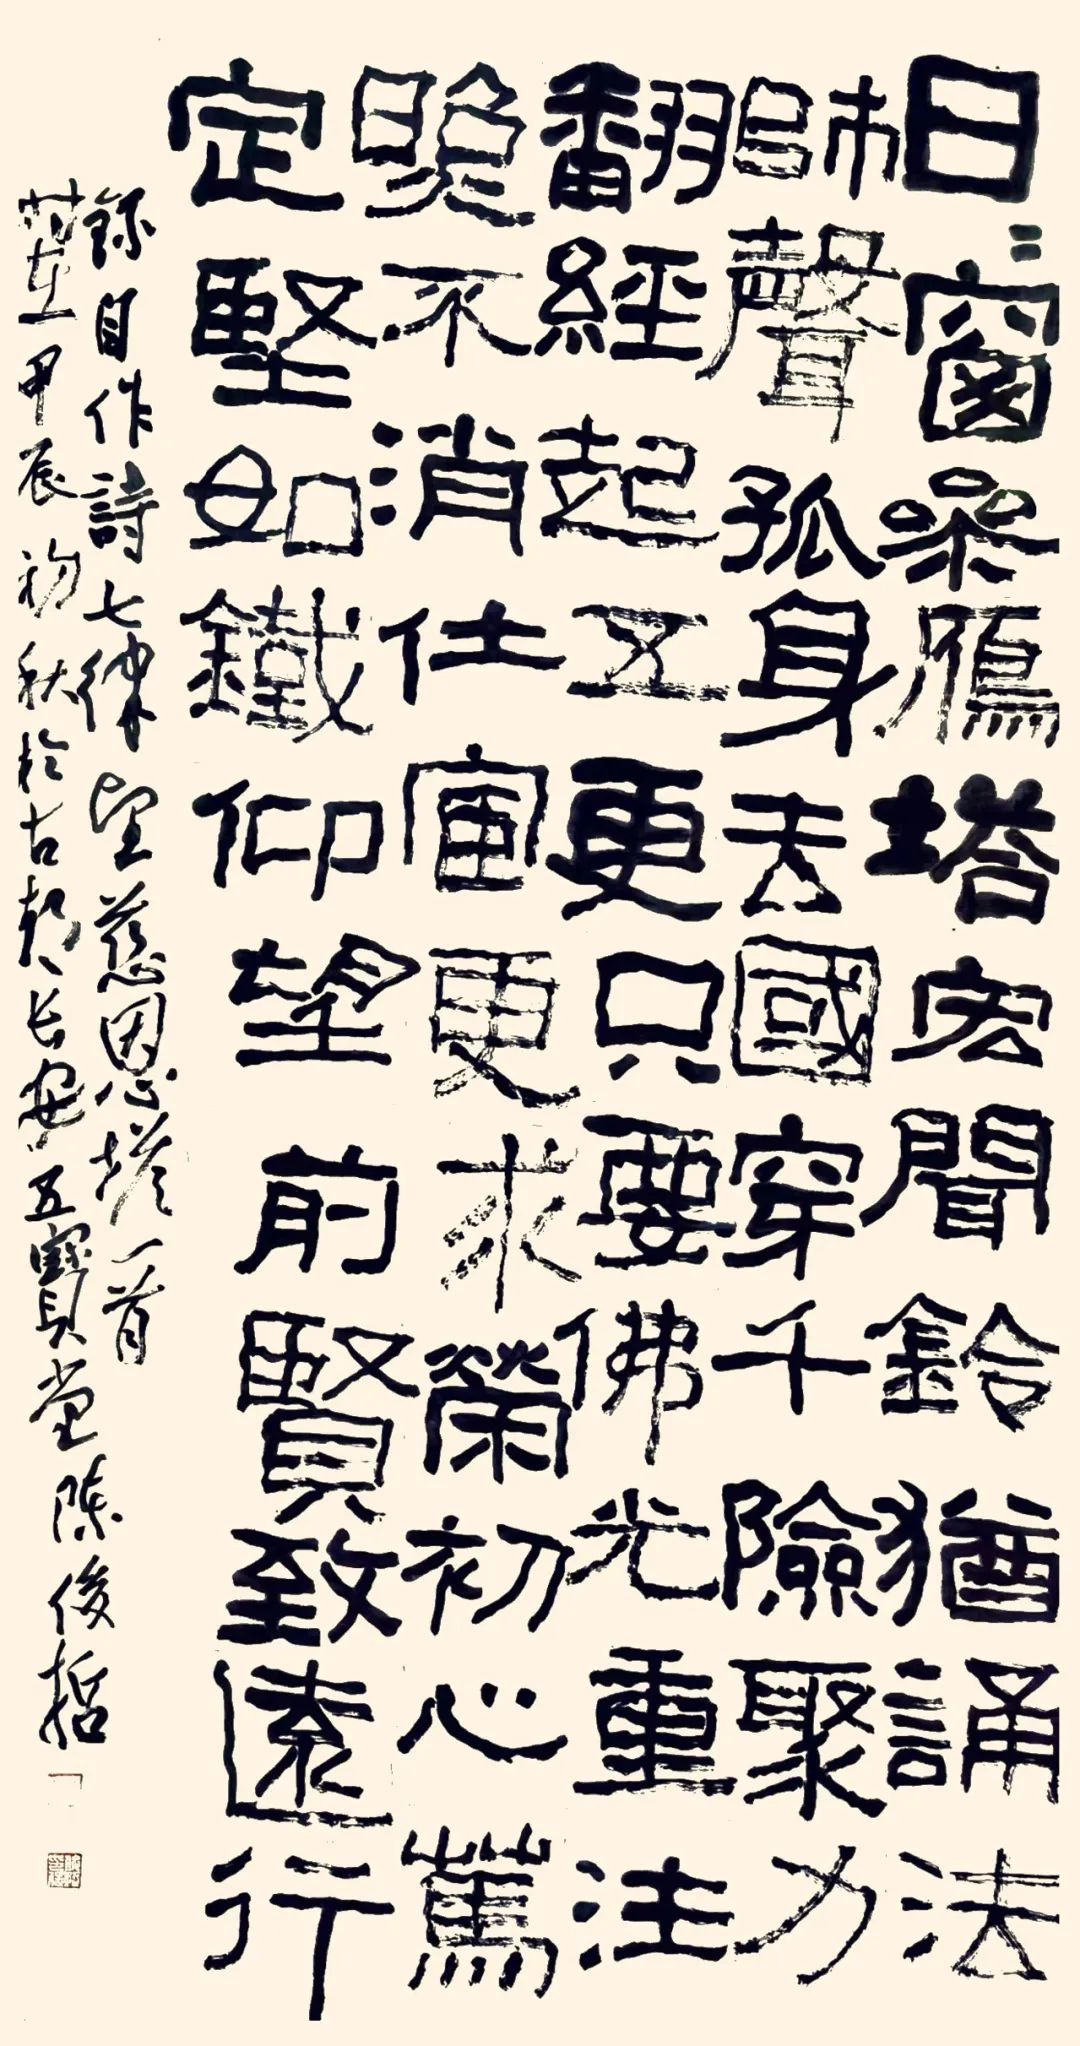 日〻窗參雁塔宏聞鈴猶誦法
師聲孤身去國穿千險聚力
翻經起五更只要佛光重注
不消仕宦更求榮初心篤
定堅如鐵仰望前賢致遠行
錄自作詩七律望慈恩塔一首
時在甲辰初秋於古都長安五寶堂陳俊哲